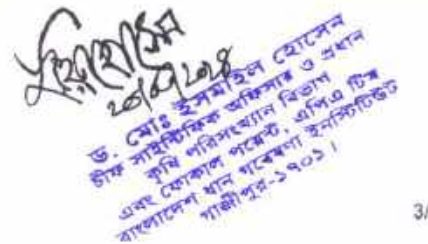 ২০/০৫/২০২৪
ড. মোঃ ইসমাইল হোসেন
চীফ সাইন্টিফিক অফিসার ও প্রধান
কৃষি পরিসংখ্যান বিভাগ
এবং ফোকাল পয়েন্ট, এপিএ টিম
বাংলাদেশ ধান গবেষণা ইনস্টিটিউট
গাজীপুর-১৭০১।
3/